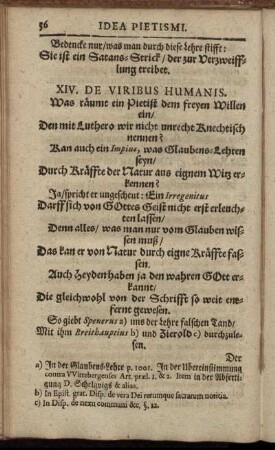 56 IDEA PIETISMI.
Bedencke nur/was man durch diese Lehre stifft:
Sie ist ein Satans-Strick/ der zur Verzweiff-
lung treibet.
XIV. DE VIRIBUS HUMANIS.
Was räumt ein Pietist dem freyen Willen
ein/
Den mit Luthero wir nicht unrecht Knechtisch
nennen?
Kan auch ein Impius, was Glaubens-Lehren
seyn/
Durch Kräffte der Natur aus eignem Witz er-
kennen?
Ja/spricht er ungescheut: Ein Irregenitus
Darff sich von GOttes Geist nicht erst erleuch-
ten lassen/
Denn alles/ was man nur vom Glauben wis-
sen muß/
Das kan er von Natur durch eigne Kräffte fas-
sen.
Auch Heyden haben ja den wahren GOtt er-
kannt/
Die gleichwohl von der Schrifft so weit ent-
fernt gewesen.
So giebt Spenerus a) uns der Lehre falschen Tand/
Mit ihm Breithauptius b) und Zierold c) durchzule-
sen.
Der
a) In der Glaubens-Lehre p. 1001. In der Ubereinstimmung
contra VVittebergenses Art. præl. 1. & 2. Item in der Abferti-
gung D. Schelgvigs & alias.
b) In Epist. grat. Disp. de vera Dei rerumque sacrarum notitia.
c) In Disp. de nexu communi &c, §. 12.